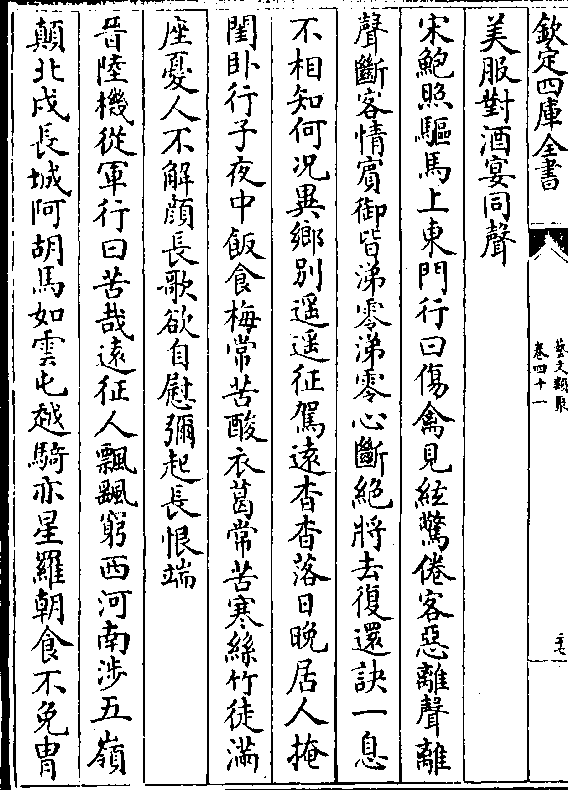 欽定四庫全書
藝文類聚
卷四十一
二七
美服對酒宴同聲
宋鮑照驅馬上東門行曰傷禽見絃驚倦客惡離聲離
聲斷客情賓御皆涕零涕零心斷絶將去復還訣一息
不相知何况異鄉別遥遥征駕遠杳杳落日晚居人掩
閨卧行子夜中飯食梅常苦酸衣葛常苦寒絲竹徒滿
座憂人不解顔長歌欲自慰彌起長恨端
晉陸機從軍行曰苦哉遠征人飄飄窮西河南涉五嶺
顛北戍長城阿胡馬如雲屯越騎亦星羅朝食不免胄